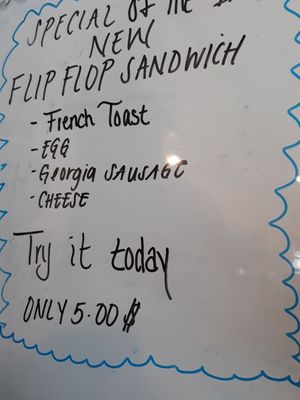 SPECIAL OF THE
NEW
FLIP FLOP SANDWICH
- French Toast
- EGG
- Georgia SAUSAGE
- CHEESE
Try it today
ONLY 5.00 $